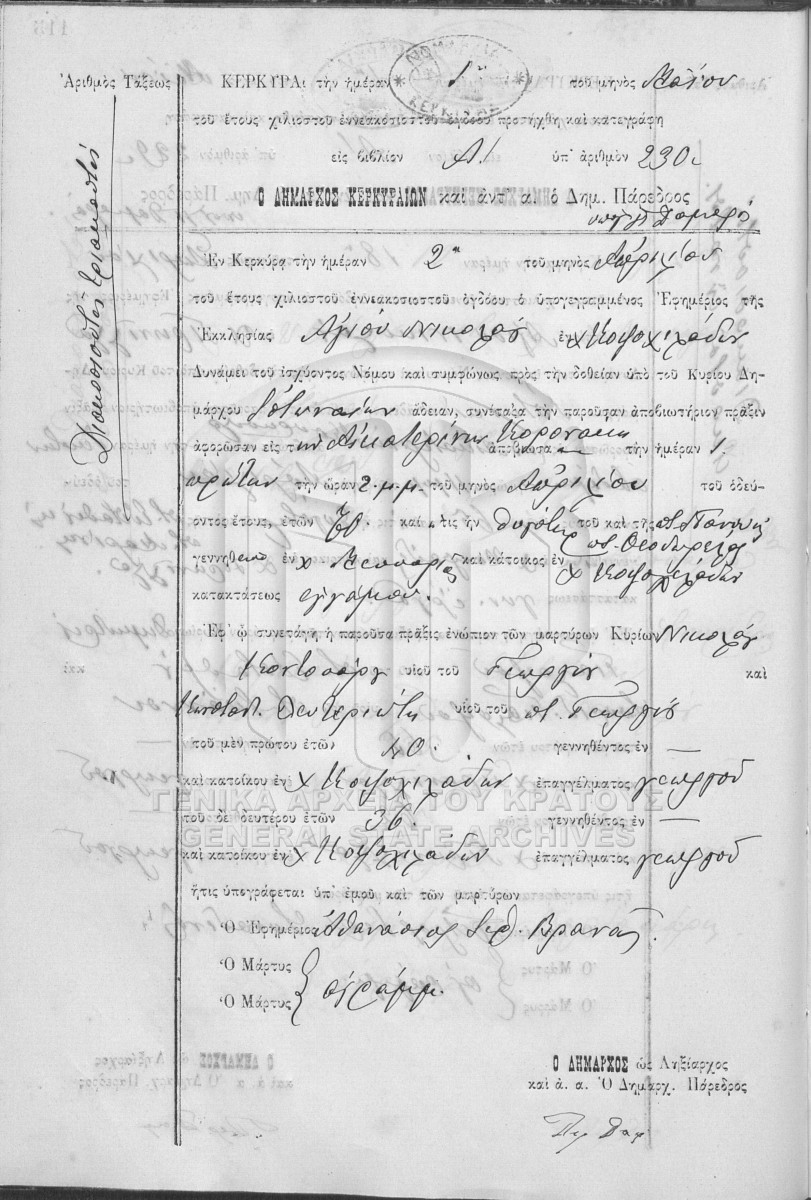 Ἀριθμὸς Τάξεως
Διακόσιοστὴ τριακοστὴ
ΝΟΜΑΡΧΙΑ
ΚΕΡΚΥΡΑΣ
ΚΕΡΚΥΡΑ τὴν ἡμέραν 1ῃ τοῦ μηνὸς Μαΐου
τοῦ ἔτους χιλιοστοῦ ἐννεακοσιοστοῦ ὀγδόου προσήχθη καὶ κατεγράφη
εἰς βιβλίον Α! ὑπ' ἀριθμὸν 230
Ο ΔΗΜΑΡΧΟΣ ΚΕΡΚΥΡΑΙΩΝ καὶ ἀντ' α. ὁ Δημ. Πάρεδρος
Ἐν Κερκύρᾳ τὴν ἡμέραν 2α τοῦ μηνὸς Ἀπριλίου
τοῦ ἔτους χιλιοστοῦ ἐννεακοσιοστοῦ ὀγδόου ὁ ὑπογεγραμμένος Ἐφημέριος τῆς
Ἐκκλησίας Ἁγίου Νικολάου ἐν χ Κοψοχιλάδων
Δυνάμει τοῦ ἰσχύοντος Νόμου καὶ συμφώνως πρὸς τὴν δοθεῖαν ὑπὸ τοῦ Κυρίου Δη-
μάρχου ἄδειαν, συνέταξα τὴν παροῦσαν ἀποβιωτήριον πρᾶξιν
ἀφορῶσαν εἰς τὴν Αἰκατερίνην ἀποβιώσα τὴν ἡμέραν 1.
πρώτην τὴν ὥραν 2. μ.μ. τοῦ μηνὸς Ἀπριλίου τοῦ ὁδεύ-
οντος ἔτους, ἐτῶν καὶ ἥτις ἦν θυγάτηρ τοῦ καὶ τῆς
γεννηθεῖσα ἐν χ καὶ κάτοικος ἐν χ Κοψοχειλάδων
κατακτάσεως ἐγγάμου.
Ἐφ' ᾧ συνετάγη ἡ παροῦσα πρᾶξις ἐνώπιον τῶν μαρτύρων Κυρίων Νικολάου
υἱοῦ τοῦ Γεωργίου καὶ
Κωνσταντ. Λευτεριώτη υἱοῦ τοῦ π. Γεωργίου
τοῦ μὲν πρώτου ἐτῶν 40. γεννηθέντος ἐν —
καὶ κατοίκου ἐν χ Κοψοχιλάδων ἐπαγγέλματος γεωργοῦ
ΓΕΝΙΚΑ ΑΡΧΕΙΑ ΤΟΥ ΚΡΑΤΟΥΣ
τοῦ δὲ δευτέρου ἐτῶν 36. γεννηθέντος ἐν —
GENERAL STATE ARCHIVES
καὶ κατοίκου ἐν χ Κοψοχιλάδων ἐπαγγέλματος γεωργοῦ
ἥτις ὑπογράφεται ὑπ' ἐμοῦ καὶ τῶν μαρτύρων
Ὁ Ἐφημέριος Ἀθανάσιος Ἱερ. Βρανᾶς.
Ὁ Μάρτυς
ἀγράμμ.
Ὁ Μάρτυς
Ο ΔΗΜΑΡΧΟΣ ὡς Ληξίαρχος
καὶ ἀ. α. Ὁ Δημαρχ. Πάρεδρος